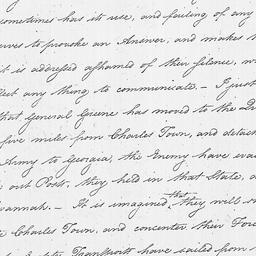 sometimes has its use, and failing of any
serves to provoke an Answer, and makes
it is addressed ashamed of their silence,
any thing to communicate. — I just
that General Greene has moved to the
five miles from Charles Town, and detach
Army to Georgia, the Enemy have evac
out Posts, they held in that State, a
vannah. — It is imagined, that they will
Charles Town, and concenter their For
Transports have sailed from